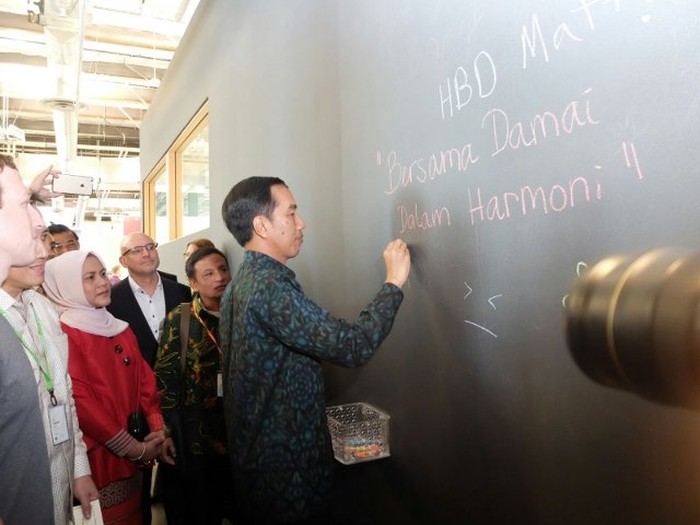 HBD Matt
"Bersama Damai
Dalam Harmoni"